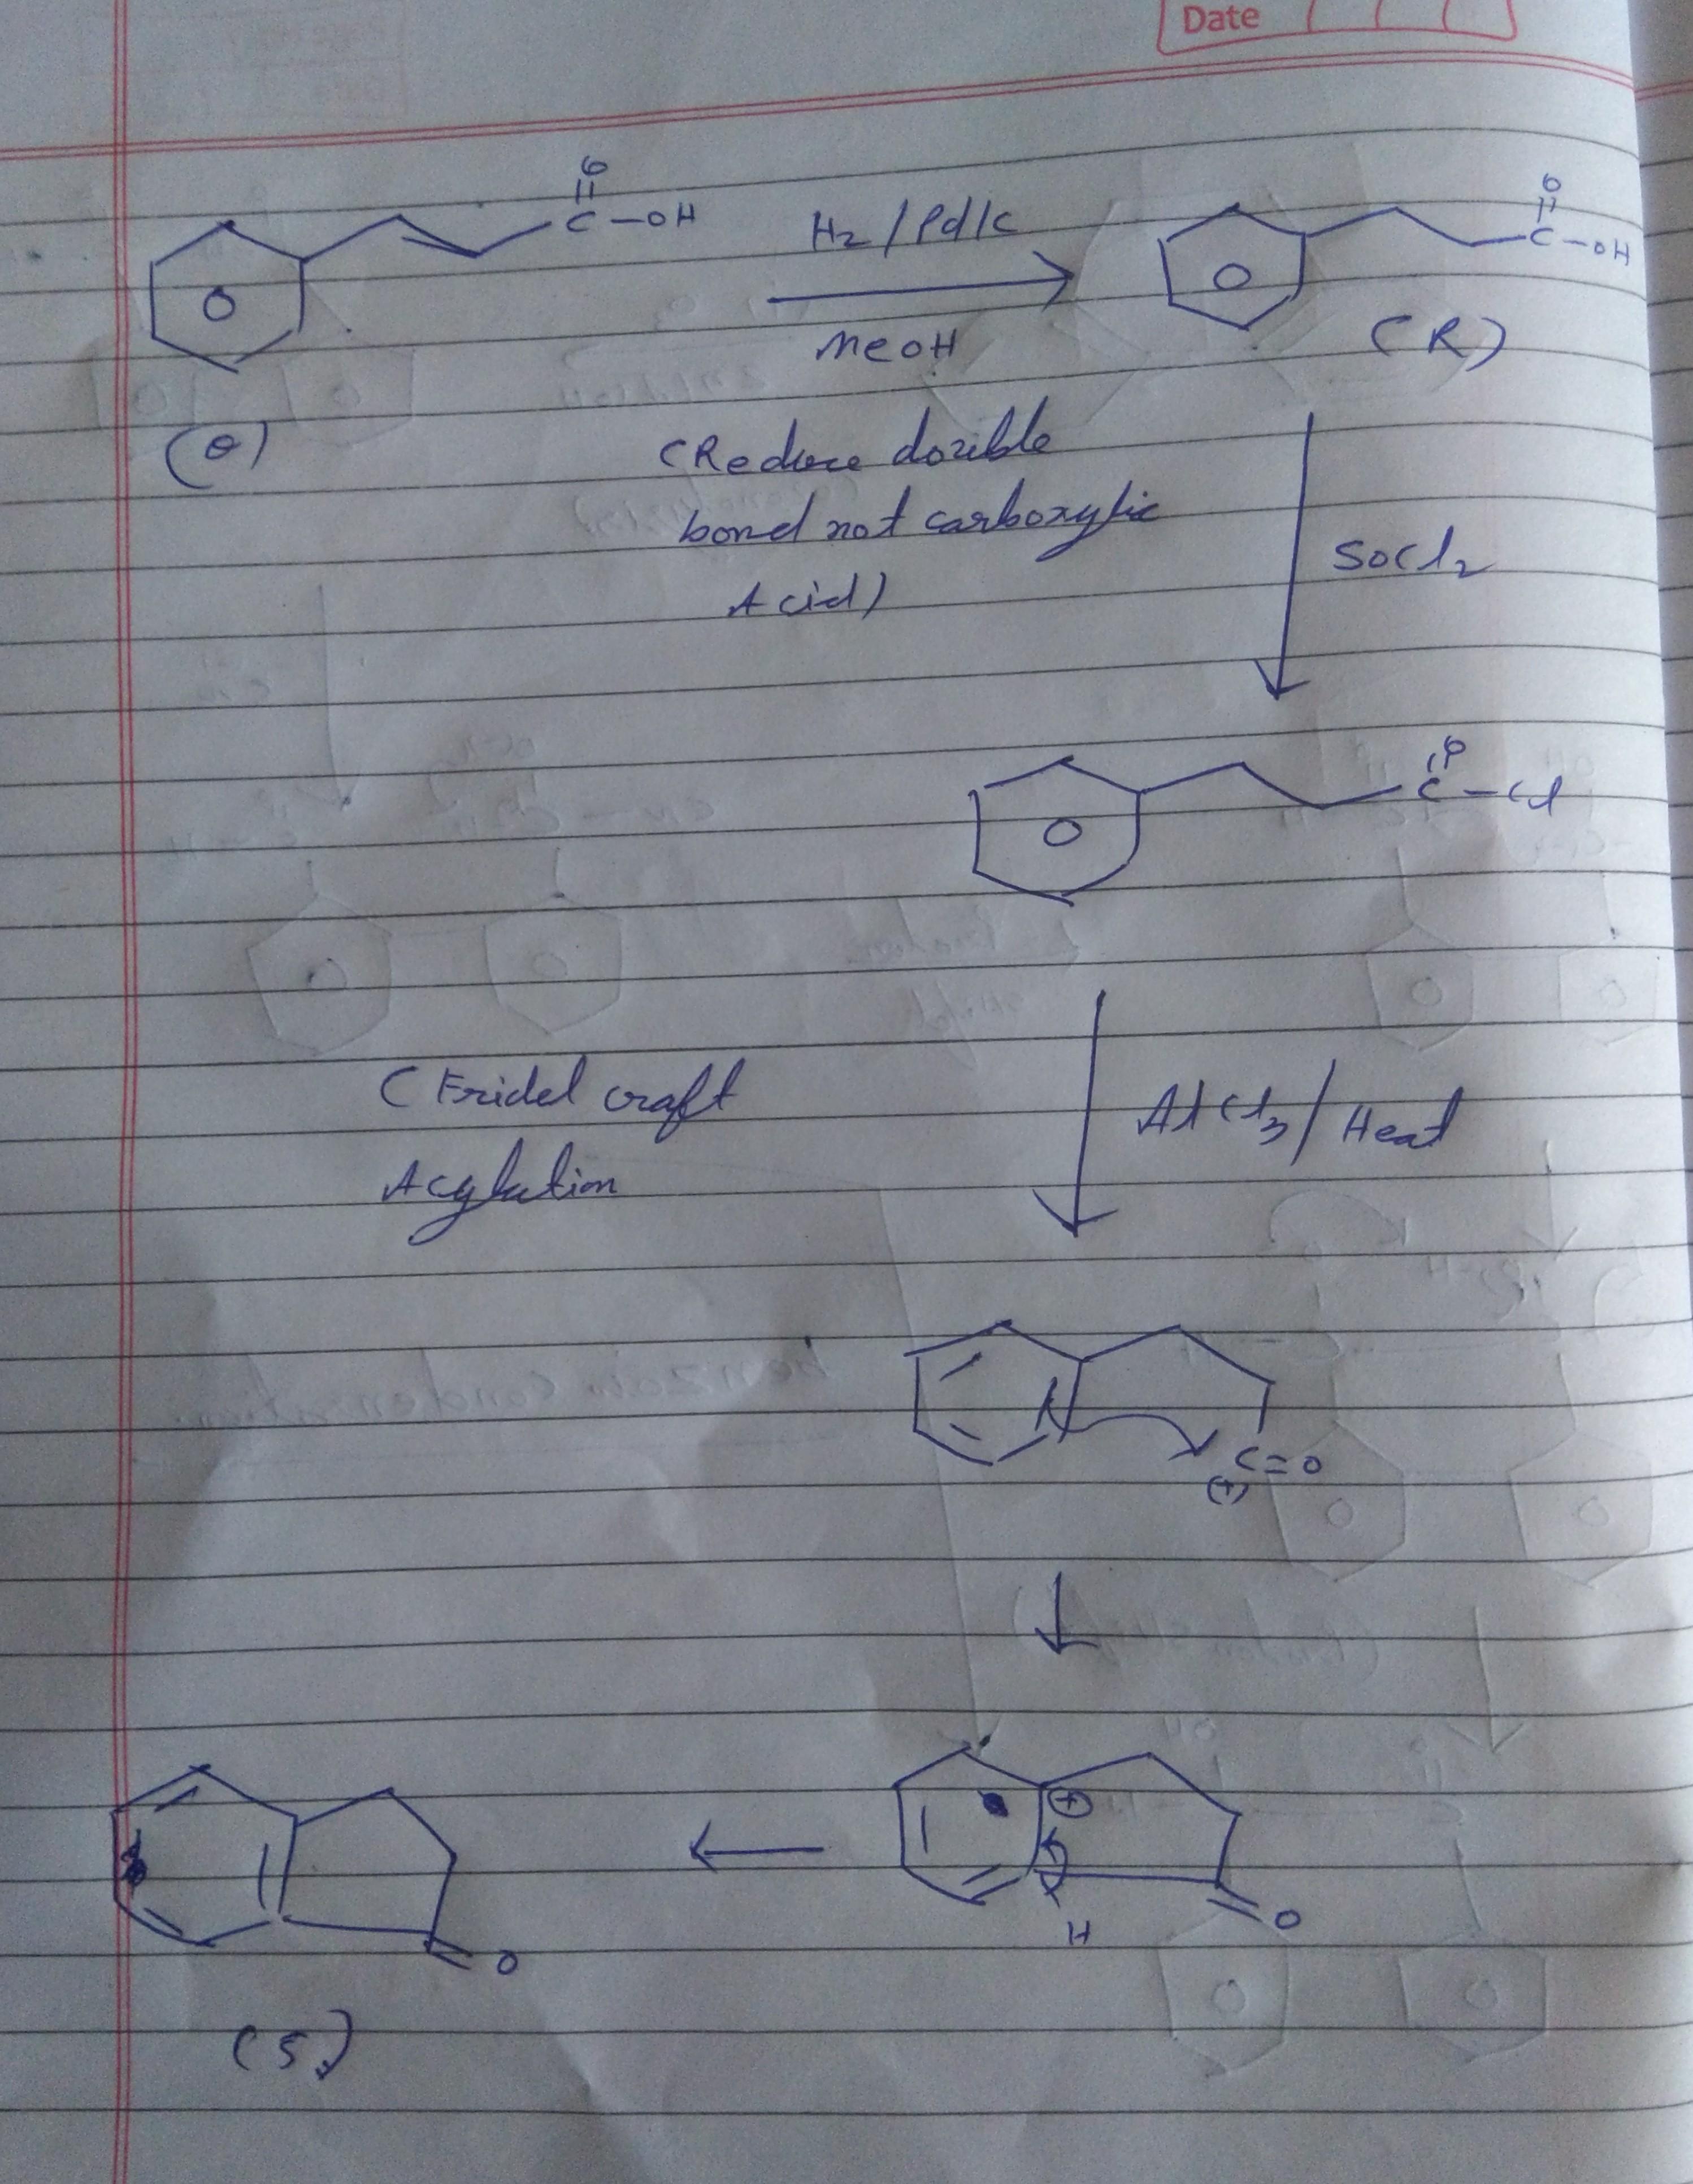 Date
O
||
C-OH
H2/Pd/C
MeOH
O
||
C-OH
(R)
(Q)
(Reduce double
bond not carboxylic
Acid)
SOCl2
O
||
C-Cl
(Fridel craft
Acylation
AlCl3/Heat
C=O
(+)
+
O
H
O
(S)